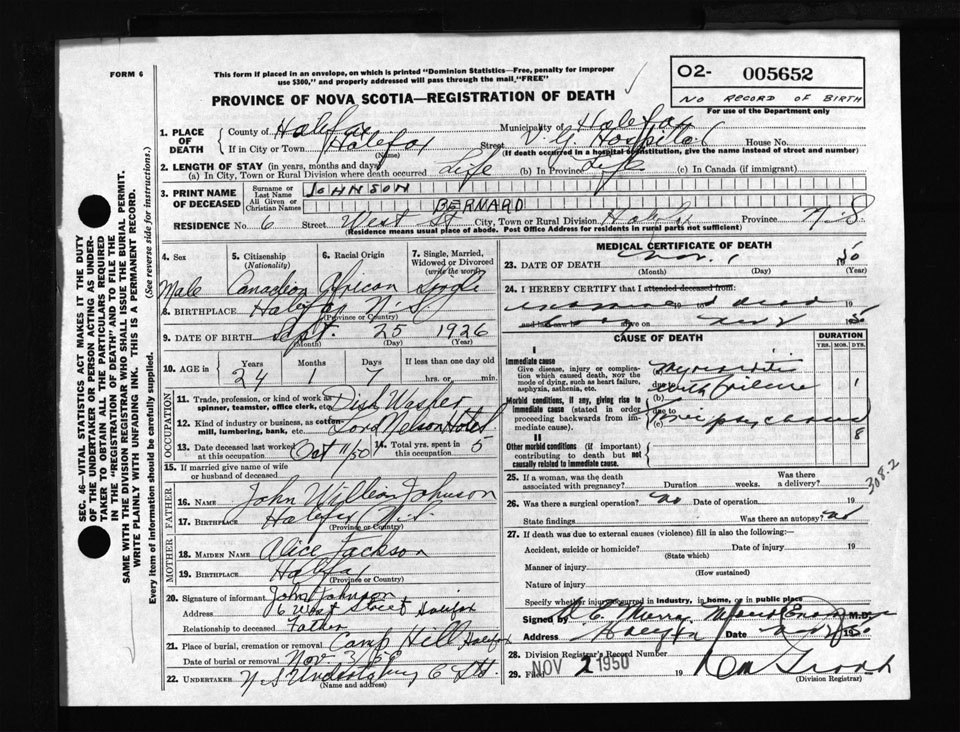 FORM 6
This form if placed in an envelope, on which is printed "Dominion Statistics—Free, penalty for improper
use $300," and properly addressed will pass through the mail "FREE"
O2- 005652
NO RECORD OF BIRTH
For use of the Department only
PROVINCE OF NOVA SCOTIA—REGISTRATION OF DEATH
1. PLACE OF DEATH
County of Halifax Municipality of Halifax
If in City or Town Halifax (Name) Street V.G. Hospital House No.
(If death occurred in a hospital or institution, give the name instead of street and number)
2. LENGTH OF STAY (in years, months and days)
(a) In City, Town or Rural Division where death occurred Life (b) In Province Life (c) In Canada (if immigrant)
3. PRINT NAME OF DECEASED
Surname or Last Name JOHNSON
All Given or Christian Names BERNARD
RESIDENCE No. 6 Street West St City, Town or Rural Division Province N.S
(Residence means usual place of abode. Post Office Address for residents in rural parts not sufficient)
4. Sex 5. Citizenship (Nationality) 6. Racial Origin 7. Single, Married, Widowed or Divorced (write the word)
Male Canadian African Single
8. BIRTHPLACE Halifax N.S
(Province or Country)
9. DATE OF BIRTH Sept. 25 1926
(Month) (Day) (Year)
10. AGE in Years Months Days If less than one day old
24 1 7 hrs. or min.
OCCUPATION
11. Trade, profession, or kind of work as spinner, teamster, office clerk, etc. Dish Washer
12. Kind of industry or business, as cotton mill, lumbering, bank, etc. Lord Nelson Hotel
13. Date deceased last worked at this occupation Oct 11/50 14. Total yrs. spent in this occupation 5
15. If married give name of wife or husband of deceased
FATHER
16. NAME John William Johnson
17. BIRTHPLACE Halifax N.S.
(Province or Country)
MOTHER
18. MAIDEN NAME Alice Jackson
19. BIRTHPLACE Halifax
(Province or Country)
20. Signature of informant John Johnson
Address 6 West Street Halifax
Relationship to deceased Father
21. Place of burial, cremation or removal Camp Hill Halifax
Date of burial or removal Nov. 3/50
22. UNDERTAKER N S Undertaking C Ltd.
(Name and address)
MEDICAL CERTIFICATE OF DEATH
23. DATE OF DEATH Nov. 1 50
(Month) (Day) (Year)
24. I HEREBY CERTIFY that I attended deceased from
19 to 19
and last saw alive on Nov 2 1950
CAUSE OF DEATH
DURATION
YRS. MOS. DYS.
I
Immediate cause
Give disease, injury or complication which caused death, not the mode of dying, such as heart failure, asphyxia, asthenia, etc.
(a) Myocarditis
due to
(b) with failure 1
Morbid conditions, if any, giving rise to immediate cause (stated in order proceeding backwards from immediate cause).
due to
(c) 8
II
Other morbid conditions (if important) contributing to death but not causally related to immediate cause.
308.2
25. If a woman, was the death associated with pregnancy? Duration weeks. Was there a delivery?
26. Was there a surgical operation? no Date of operation 19
State findings Was there an autopsy? no
27. If death was due to external causes (violence) fill in also the following:—
Accident, suicide or homicide? (State which) Date of injury 19
Manner of injury (How sustained)
Nature of injury
Specify whether injury occurred in industry, in home, or in public place
Signed by M.D.
Address Halifax Date 1950
28. Division Registrar's Record Number
29. Filed NOV 2 1950 19
(Division Registrar)
SEC. 46—VITAL STATISTICS ACT MAKES IT THE DUTY
OF THE UNDERTAKER OR PERSON ACTING AS UNDER-
TAKER TO OBTAIN ALL THE PARTICULARS REQUIRED
IN THE "REGISTRATION OF DEATH" AND TO FILE THE
SAME WITH THE DIVISION REGISTRAR WHO SHALL ISSUE THE BURIAL PERMIT.
WRITE PLAINLY WITH UNFADING INK. THIS IS A PERMANENT RECORD.
Every item of information should be carefully supplied. (See reverse side for instructions.)